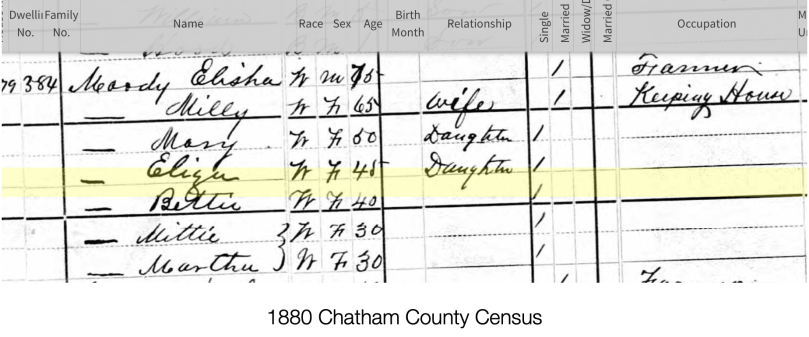 Dwelli Family No. No. Name Race Sex Age Birth Month Relationship Single Married Widow/D Married Occupation
79 384 Moody Elisha W M 75 / Farmer
— Milly W F 65 Wife / Keeping House
— Mary W F 50 Daughter /
— Eliza W F 45 Daughter /
— Bettie W F 40 /
— Mittie } W F 30 /
— Martha } W F 30 /
1880 Chatham County Census